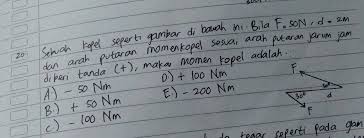 20. Sebuah kopel seperti gambar di bawah ini. Bila F = 50N, d = 2m
dan arah putaran momenkopel sesuai arah putaran jarum jam
diberi tanda (+), maka momen kopel adalah.
A) - 50 Nm D) + 100 Nm
B.) + 50 Nm E.) - 200 Nm
C) - 100 Nm
F
30°
d
30°
F
tegar seperti pada